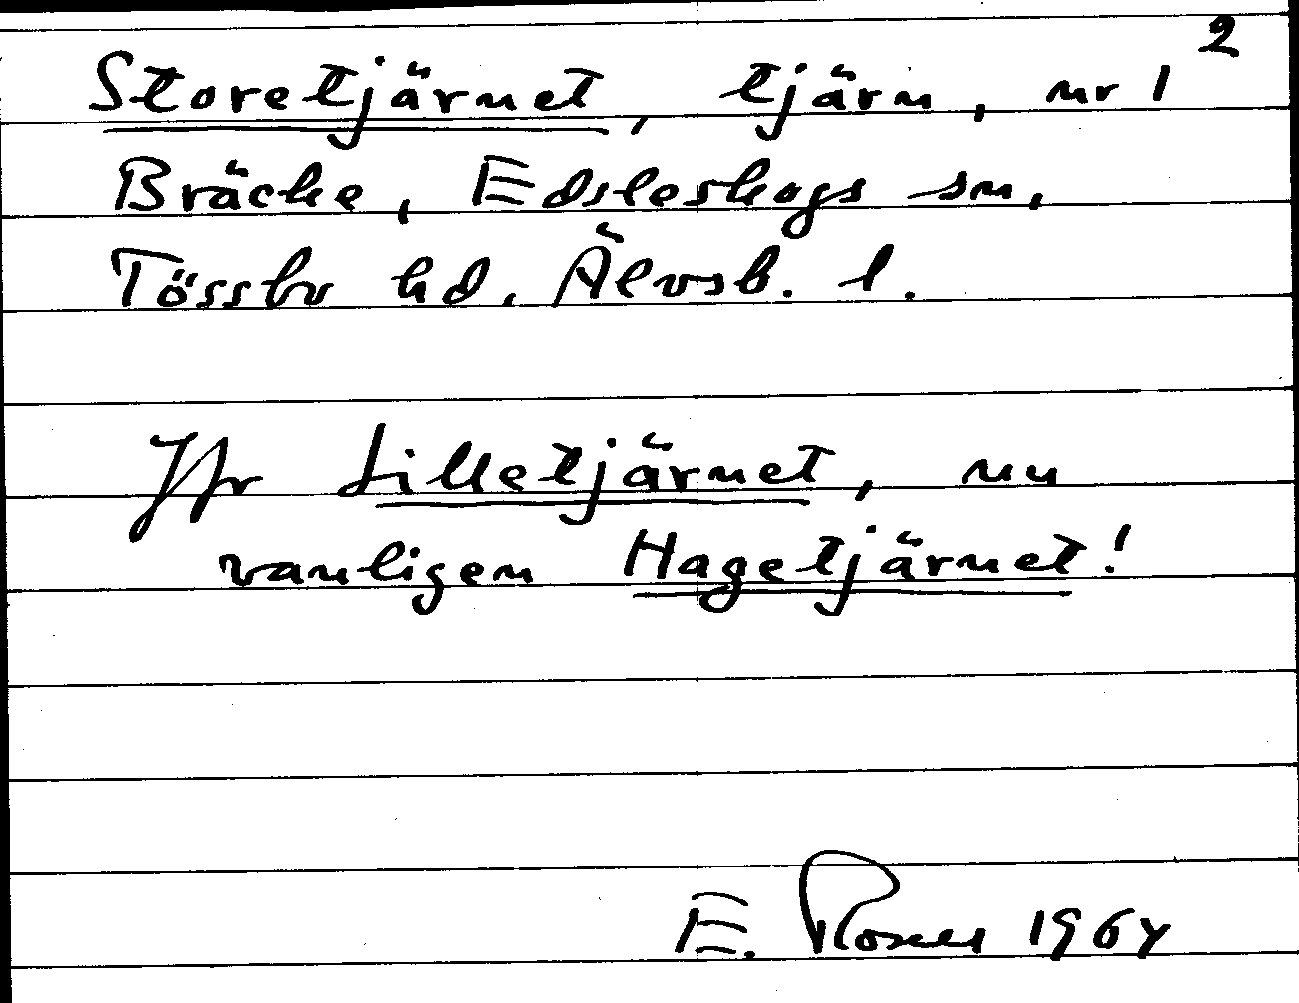 2
Storetjärnet, tjärn, nr 1
Bräcke, Edsleskogs sn,
Tössbo hd, Älvsb. l.
Jfr Lilletjärnet, nu
vanligen Hagetjärnet!
E. 1964